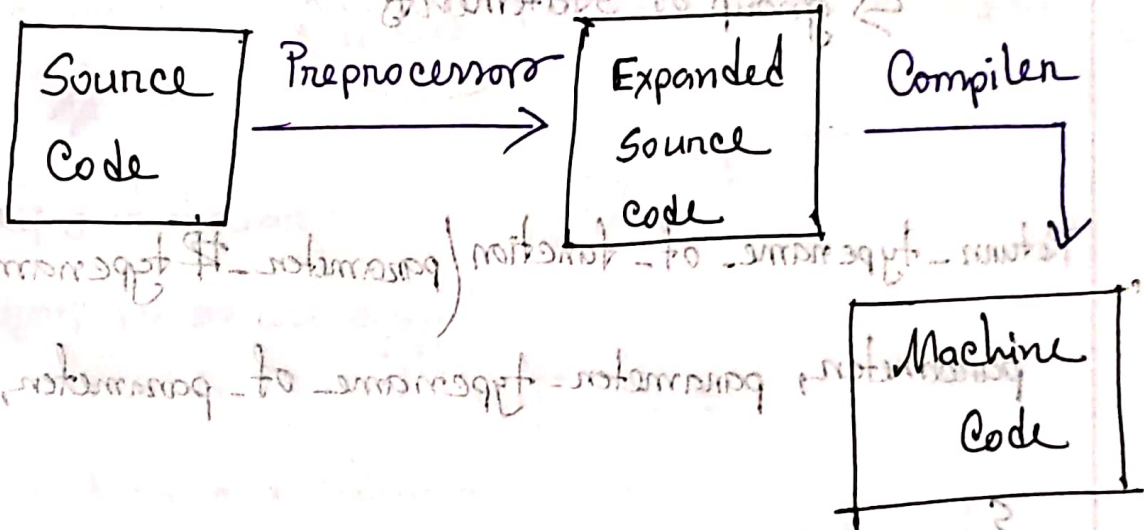 Source
Code
Preprocessor
Expanded
Source
code
Compiler
Machine
Code